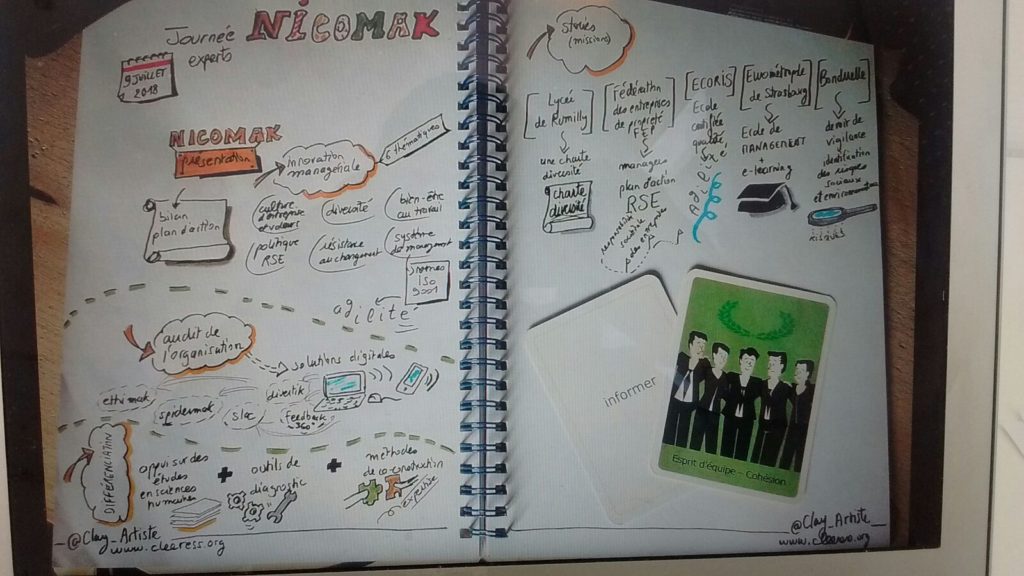 Journée
experts
NICOMAK
9 JUILLET
2018
NICOMAK
présentation
innovation
managériale
6 thématiques
bilan
plan d'action
culture
d'entreprise
et valeurs
diversité
bien-être
au travail
politique
RSE
résistance
au changement
système
de management
normes
ISO
9001
agilité
audit de
l'organisation
solutions digitales
ethimak
spidermak
slac
divertik
feedback
360°
DIFFÉRENCIATION
appui sur des
études
en sciences
humaines
+
outils de
diagnostic
+
méthodes
de co-construction
expertise
_@Clay_Artiste
www.clearess.org
Stories
(missions)
[Lycée
de Rumilly]
une charte
diversité
charte
diversité
[Fédération
des entreprises
de propreté
FEP]
managers
plan d'action
RSE
responsabilité
sociétale
des entreprises
[ECORIS]
Ecole
certifiée
qualité,
agilité
[Eurométropole
de Strasbourg]
Ecole de
MANAGEMENT
+
e-learning
[Bonduelle]
devoir de
vigilance
identification
des risques
sociaux
et environnement
RISQUES
informer
Esprit d'équipe – Cohésion
@Clay_Artiste_
www.clearess.org